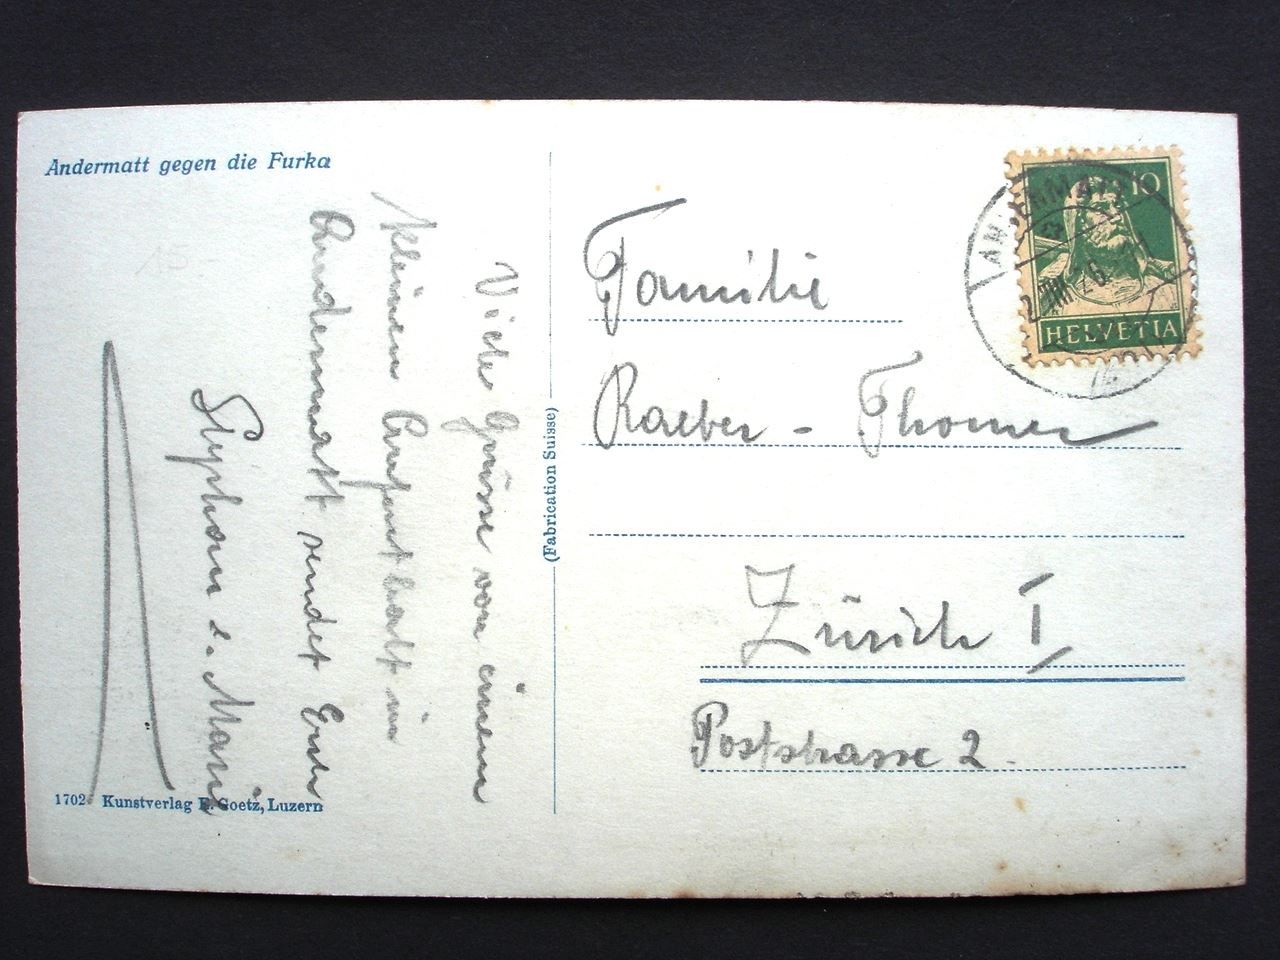 Andermatt gegen die Furka
15.-
Viele Grüsse von einem
kleinen Aufenthalt in
Andermatt sendet
Stephan u. Marie
1702 Kunstverlag E. Goetz, Luzern
(Fabrication Suisse)
10
HELVETIA
ANDERMATT
Familie
Raeber - Thomer
Zürich I,
Poststrasse 2.